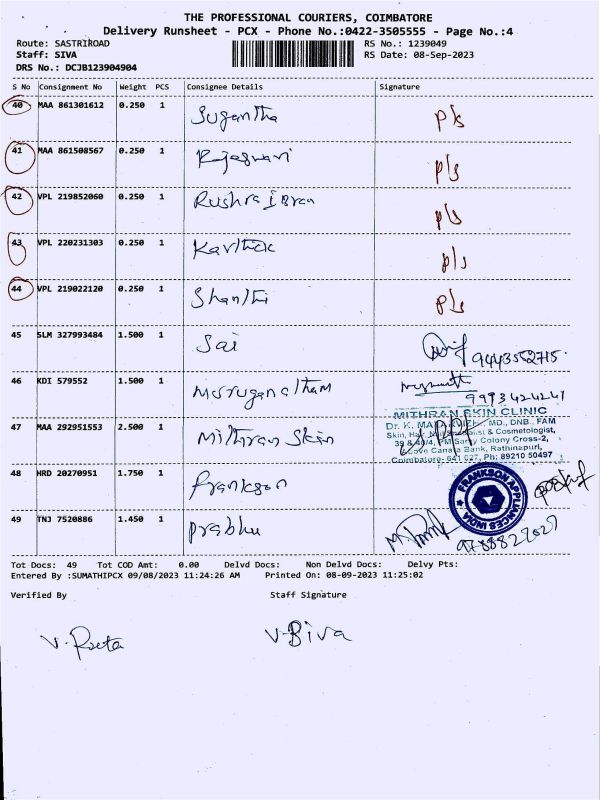 THE PROFESSIONAL COURIERS, COIMBATORE
Delivery Runsheet - PCX - Phone No.:0422-3505555 - Page No.:4
Route: SASTRIROAD RS No.: 1239049
Staff: SIVA RS Date: 08-Sep-2023
DRS No.: DCJB123904904
S No Consignment No Weight PCS Consignee Details Signature
40 MAA 861301612 0.250 1 Sugantha P/s
41 MAA 861508567 0.250 1 Rajaswari P/s
42 VPL 219852060 0.250 1 P/s
43 VPL 220231303 0.250 1 Karthick P/s
44 VPL 219022120 0.250 1 Shanthi P/s
45 SLM 327993484 1.500 1 Sai 9443552715
46 KDI 579552 1.500 1 Muruganatham
47 MAA 292951553 2.500 1 Mithran Skin
MITHRAN SKIN CLINIC
MD., DNB., FAM
& Cosmetologist,
Colony Cross-2,
Bank, Rathinapuri,
Coimbatore- 641 027, Ph: 89210 50497
48 HRD 20270951 1.750 1 Frankson
FRANKSON APPLIANCES INDIA
49 TNJ 7520886 1.450 1 Prabhu
Tot Docs: 49 Tot COD Amt: 0.00 Delvd Docs: Non Delvd Docs: Delvy Pts:
Entered By :SUMATHIPCX 09/08/2023 11:24:26 AM Printed On: 08-09-2023 11:25:02
Verified By Staff Signature
V-Biva